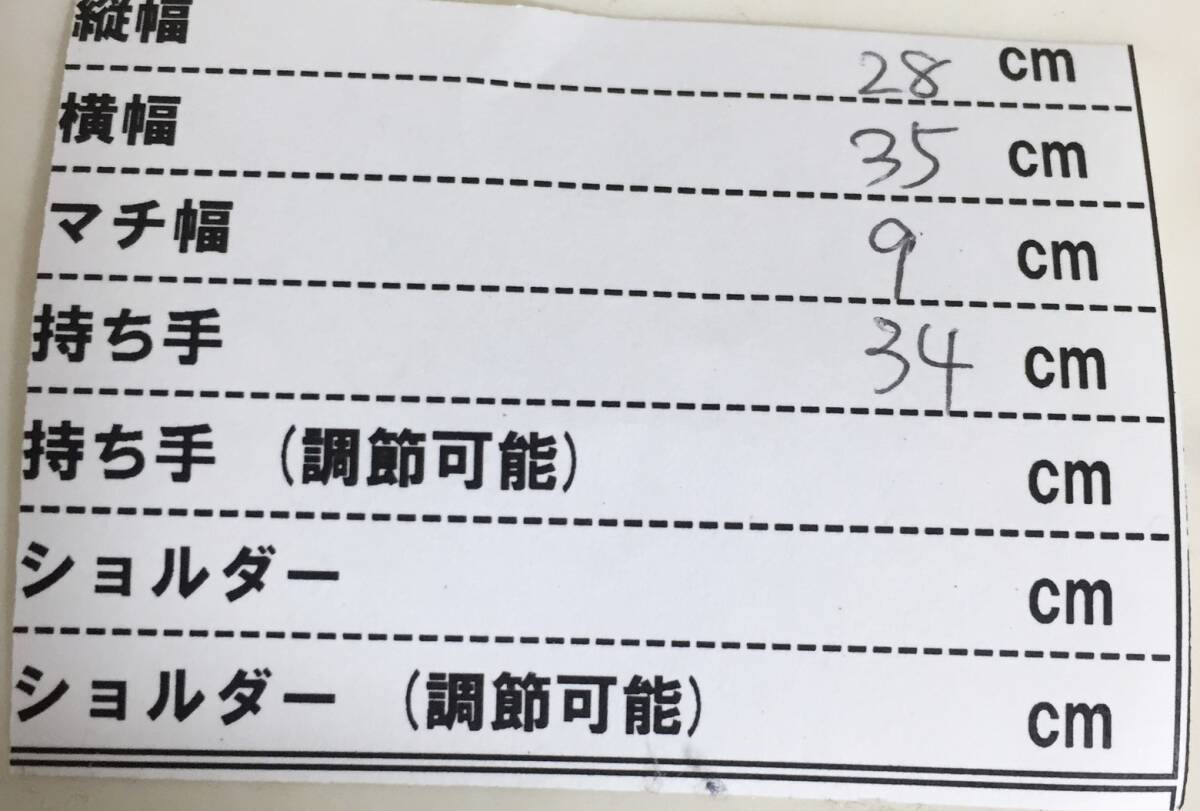 縦幅 28 cm
横幅 35 cm
マチ幅 9 cm
持ち手 34 cm
持ち手 (調節可能) cm
ショルダー cm
ショルダー (調節可能) cm